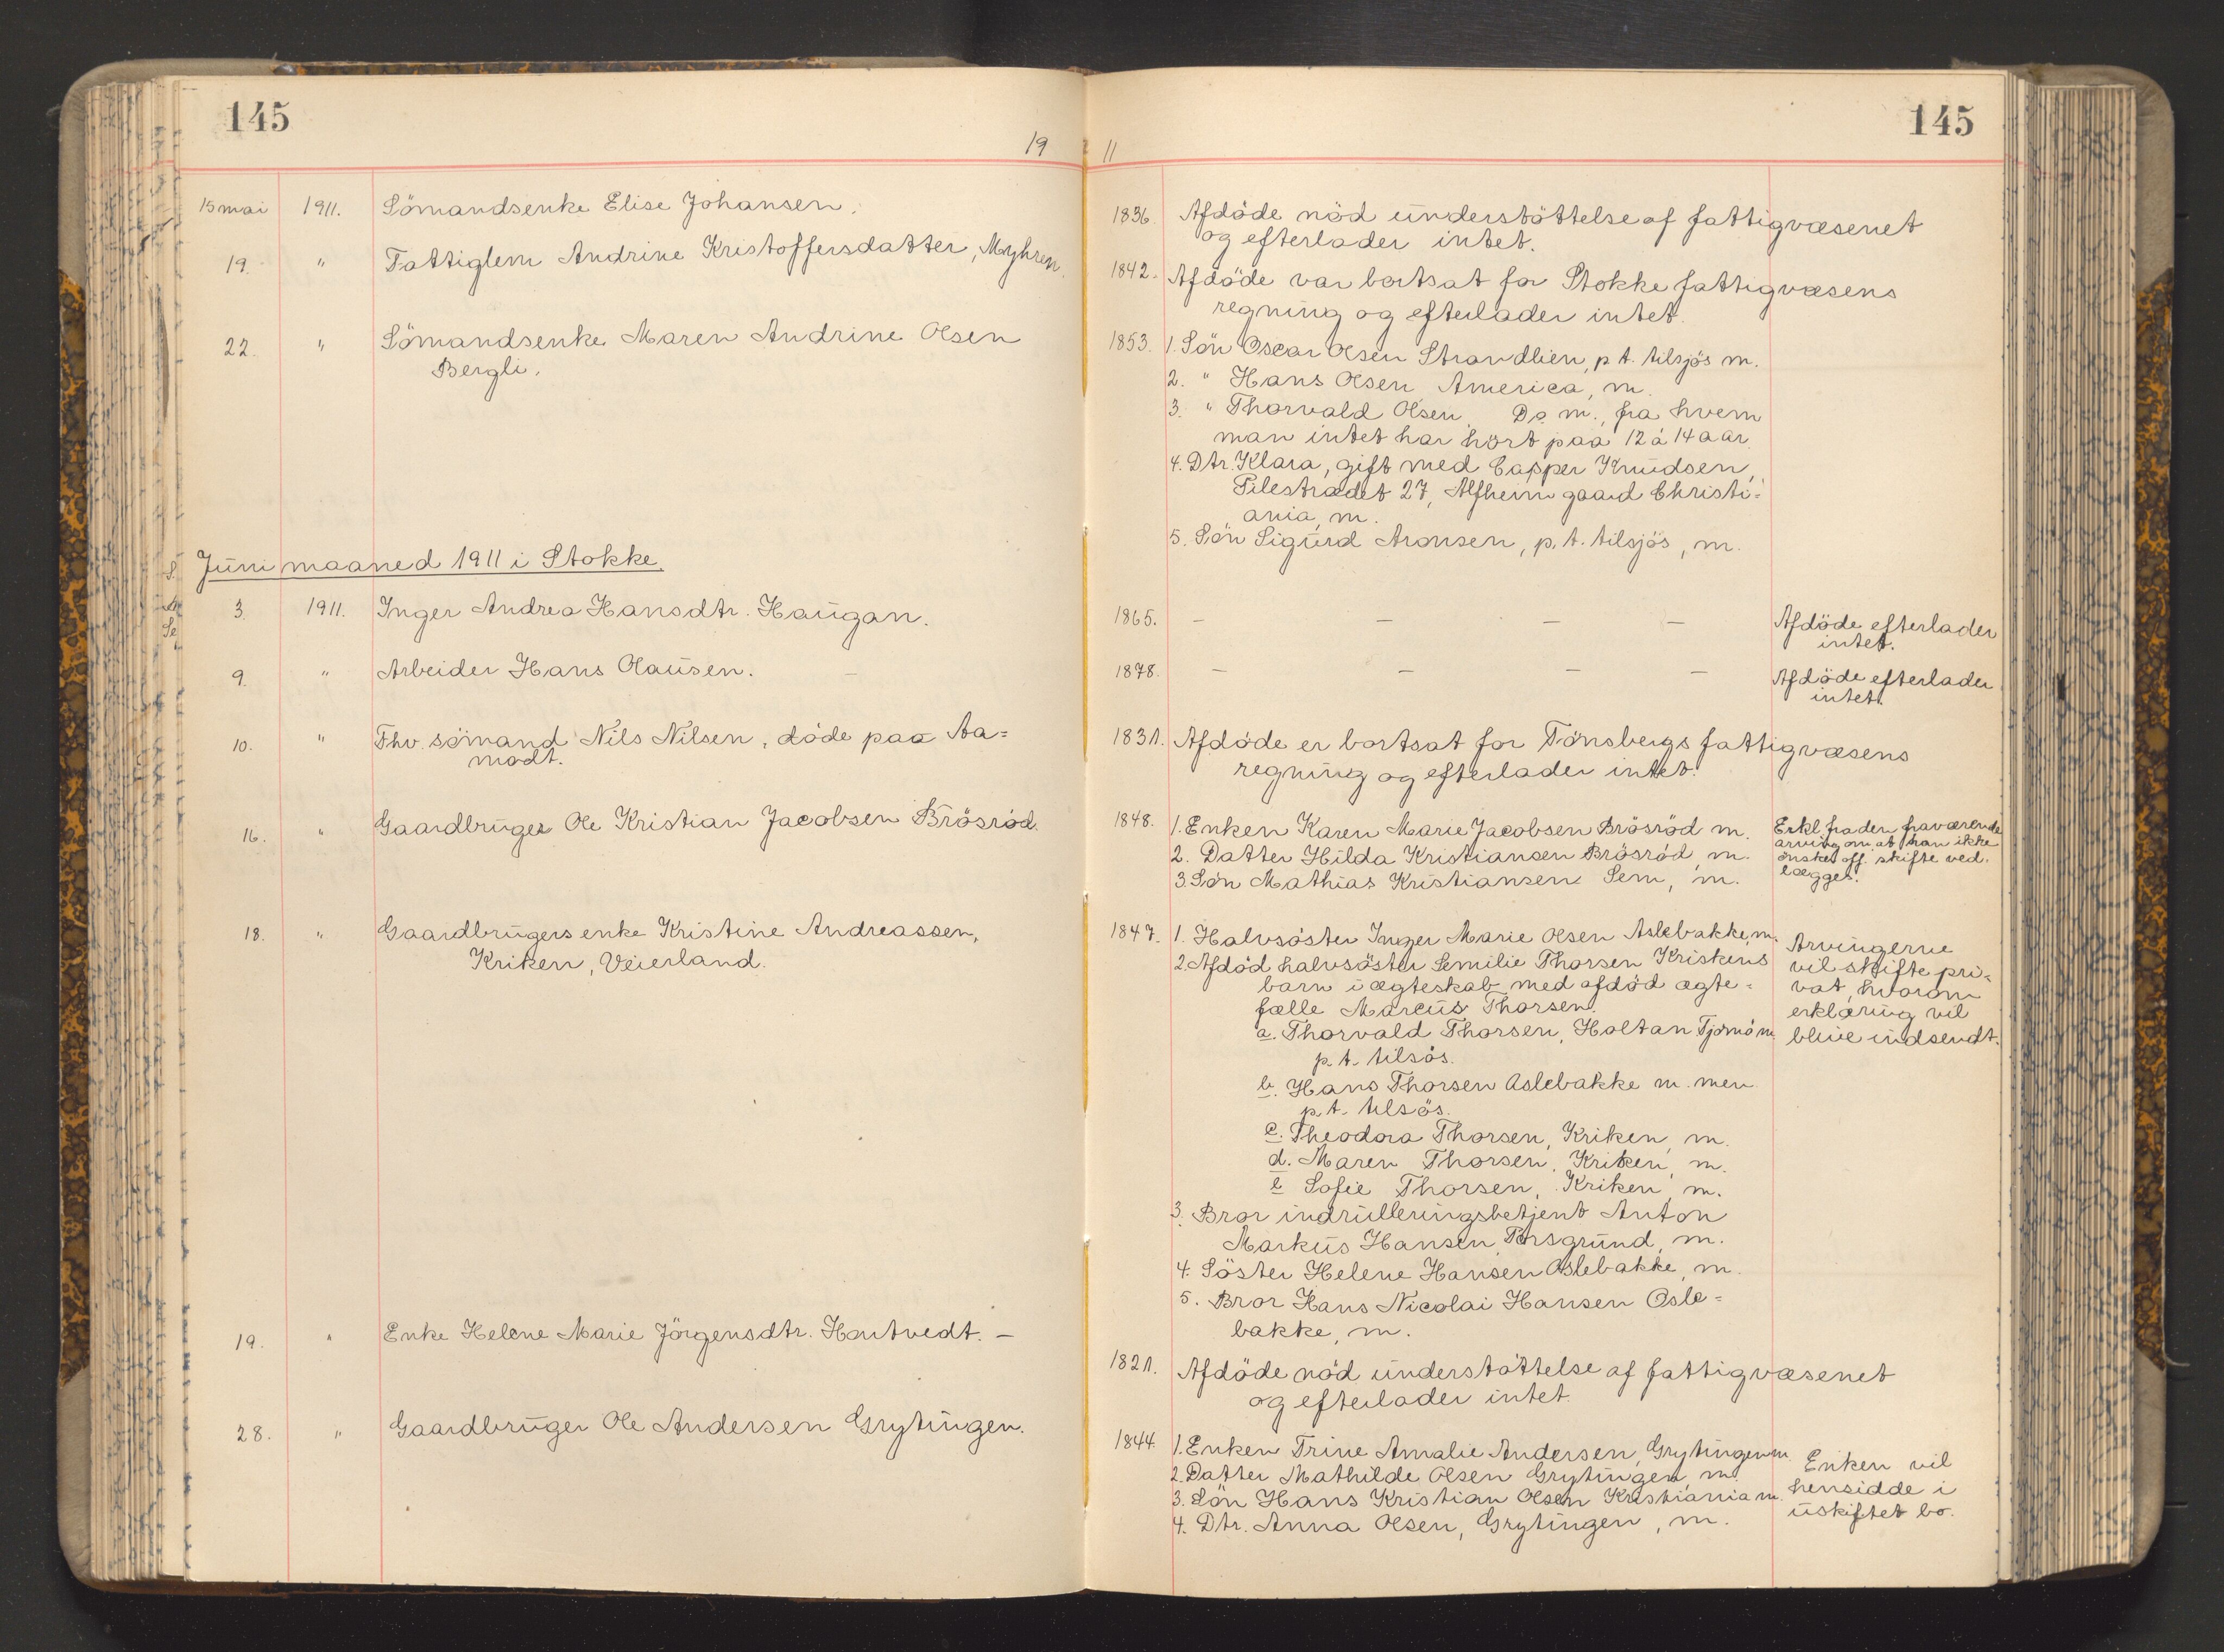 145
145
19 11
15 mai 1911. Sömandsenke Elise Johansen.
1836. Afdöde nöd understöttelse af fattigvæsenet
og efterlader intet.
19. " Fattiglem Andrine Kristoffersdatter, Myhren.
1842. Afdöde var bortsat for Stokke fattigvæsens
regning og efterlader intet.
22. " Sömandsenke Maren Andrine Olsen
Bergli.
1853. 1. Sön Oscar Olsen Strandlien, p t. tilsjös m.
2. " Hans Olsen America, m.
3. " Thorvald Olsen Do m., fra hvem
man intet har hört paa 12 á 14 aar.
4. Dtr. Klara, gift med Casper Knudsen,
Pilestrædet 27, Alfheim gaard Christi=
ania, m.
5. Sön Sigurd Aronsen, p. t. tilsjös, m.
Juni maaned 1911 i Stokke.
3. 1911. Inger Andrea Hansdtr. Haugan.
1865. — — — — Afdöde efterlader
intet.
9. " Arbeider Hans Olausen. —
1878. — — — — Afdöde efterlader
intet.
10. " Fhv. sömand Nils Nilsen, döde paa Aa=
modt.
1831. Afdöde er bortsat for Tönsbergs fattigvæsens
regning og efterlader intet.
16. " Gaardbruger Ole Kristian Jacobsen Brösröd.
1848. 1. Enken Karen Marie Jacobsen Brösröd m.
2. Datter Hilda Kristiansen Brösröd, m.
3. Sön Mathias Kristiansen Sem, m.
Erkl. fra den fraværende
arving om at han ikke
önsker off. skifte ved.
lægges.
18. " Gaardbrugers enke Kristine Andreassen,
Kriken, Veierland.
1847. 1. Halvsöster Inger Marie Olsen Aslebakke, m.
2. Afdöd halvsöster Semilie Thorsen Kriskens
barn i ægteskab med afdöd ægte=
fælle Marcus Thorsen.
a. Thorvald Thorsen, Holtan Tjømö m.
p. t. tilsös.
b. Hans Thorsen Oslebakke m. men
p. t. tilsös.
c. Theodora Thorsen, Kriken, m.
d. Maren Thorsen, Kriken, m.
e Sofie Thorsen, Kriken, m.
3. Bror indrulleringsbetjent Anton
Markus Hansen, Porsgrund, m.
4. Söster Helene Hansen Oslebakke, m.
5. Bror Hans Nicolai Hansen Osle=
bakke, m.
Arvingerne
vil skifte pri=
vat, hvorom
erklæring vil
blive indsendt.
19. " Enke Helene Marie Jörgensdtr. Hortvedt. —
1821. Afdöde nöd understöttelse af fattigvæsenet
og efterlader intet.
28. " Gaardbruger Ole Andersen Grytingen.
1844. 1. Enken Trine Amalie Andersen, Grytingen m.
2. Datter Mathilde Olsen Grytingen, m.
3. Sön Hans Kristian Olsen Kristiania m.
4. Dtr. Anna Olsen, Grytingen, m.
Enken vil
hensidde i
uskiftet bo.